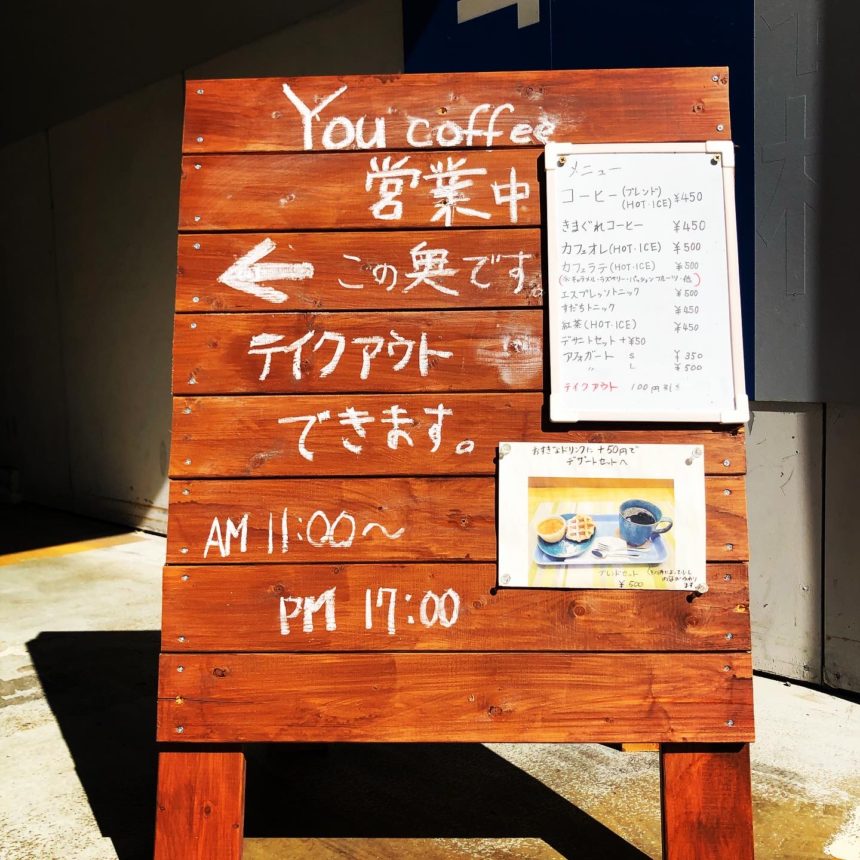 You coffee
営業中
← この奥です。
テイクアウト
できます。
AM 11:00〜
PM 17:00
メニュー
コーヒー(ブレンド)(HOT・ICE) ¥450
きまぐれコーヒー ¥450
カフェオレ(HOT・ICE) ¥500
カフェラテ(HOT・ICE) ¥500
(※キャラメル・ラズベリー・パッションフルーツ・他)
エスプレッソトニック ¥500
すだちトニック ¥450
紅茶(HOT・ICE) ¥450
デザートセット +¥50
アフォガート S ¥350
〃 L ¥500
テイクアウト 100円引き
お好きなドリンクに +50円で
デザートセットへ
ブレンドセット
¥500